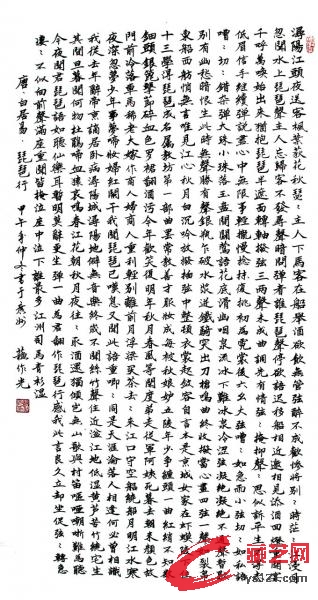 潯陽江頭夜送客楓葉荻花秋瑟〻主人下馬客在船舉酒欲飲無管弦醉不成歡慘將別〻時茫〻江浸月
忽聞水上琵琶聲主人忘歸客不發尋聲暗問彈者誰琵琶聲停欲語遲移船相近邀相見添酒回燈重開宴
千呼萬喚始出來猶抱琵琶半遮面轉軸撥弦三兩聲未成曲調先有情弦〻掩抑聲〻思似訴平生不得志
低眉信手續續彈說盡心中無限事輕攏慢撚抹復挑初為霓裳後六幺大弦嘈〻如急雨小弦切〻如私語
嘈〻切〻錯雜彈大珠小珠落玉盤間關鶯語花底滑幽咽泉流冰下難冰泉冷澀弦凝絕凝絕不通聲暫歇
別有幽愁暗恨生此時無聲勝有聲銀瓶乍破水漿迸鐵騎突出刀槍鳴曲終收撥當心畫四弦一聲如裂帛
東船西舫悄無言唯見江心秋月白沉吟放撥插弦中整頓衣裳起斂容自言本是京城女家在蝦蟆陵下住
十三學得琵琶成名屬教坊第一部曲罷常教善才服妝成每被秋娘妒五陵年少爭纏頭一曲紅綃不知數
鈿頭銀篦擊節碎血色羅裙翻酒污今年歡笑復明年秋月春風等閒度弟走從軍阿姨死暮去朝來顏色故
門前冷落車馬稀老大嫁作商人婦商人重利輕別離前月浮梁買茶去〻來江口守空船繞船月明江水寒
夜深忽夢少年事夢啼妝淚紅闌干我聞琵琶已嘆息又聞此語重唧〻同是天涯淪落人相逢何必曾相識
我從去年辭帝京謫居臥病潯陽城潯陽地僻無音樂終歲不聞絲竹聲住近湓江地低濕黃蘆苦竹繞宅生
其間旦暮聞何物杜鵑啼血猿哀鳴春江花朝秋月夜往〻取酒還獨傾豈無山歌與村笛嘔啞嘲哳難為聽
今夜聞君琵琶語如聽仙樂耳暫明莫辭更坐彈一曲為君翻作琵琶行感我此言良久立卻坐促弦〻轉急
淒〻不似向前聲滿座重聞皆掩泣座中泣下誰最多江州司馬青衫濕
唐·白居易·琵琶行 甲午年仲冬書于 作光